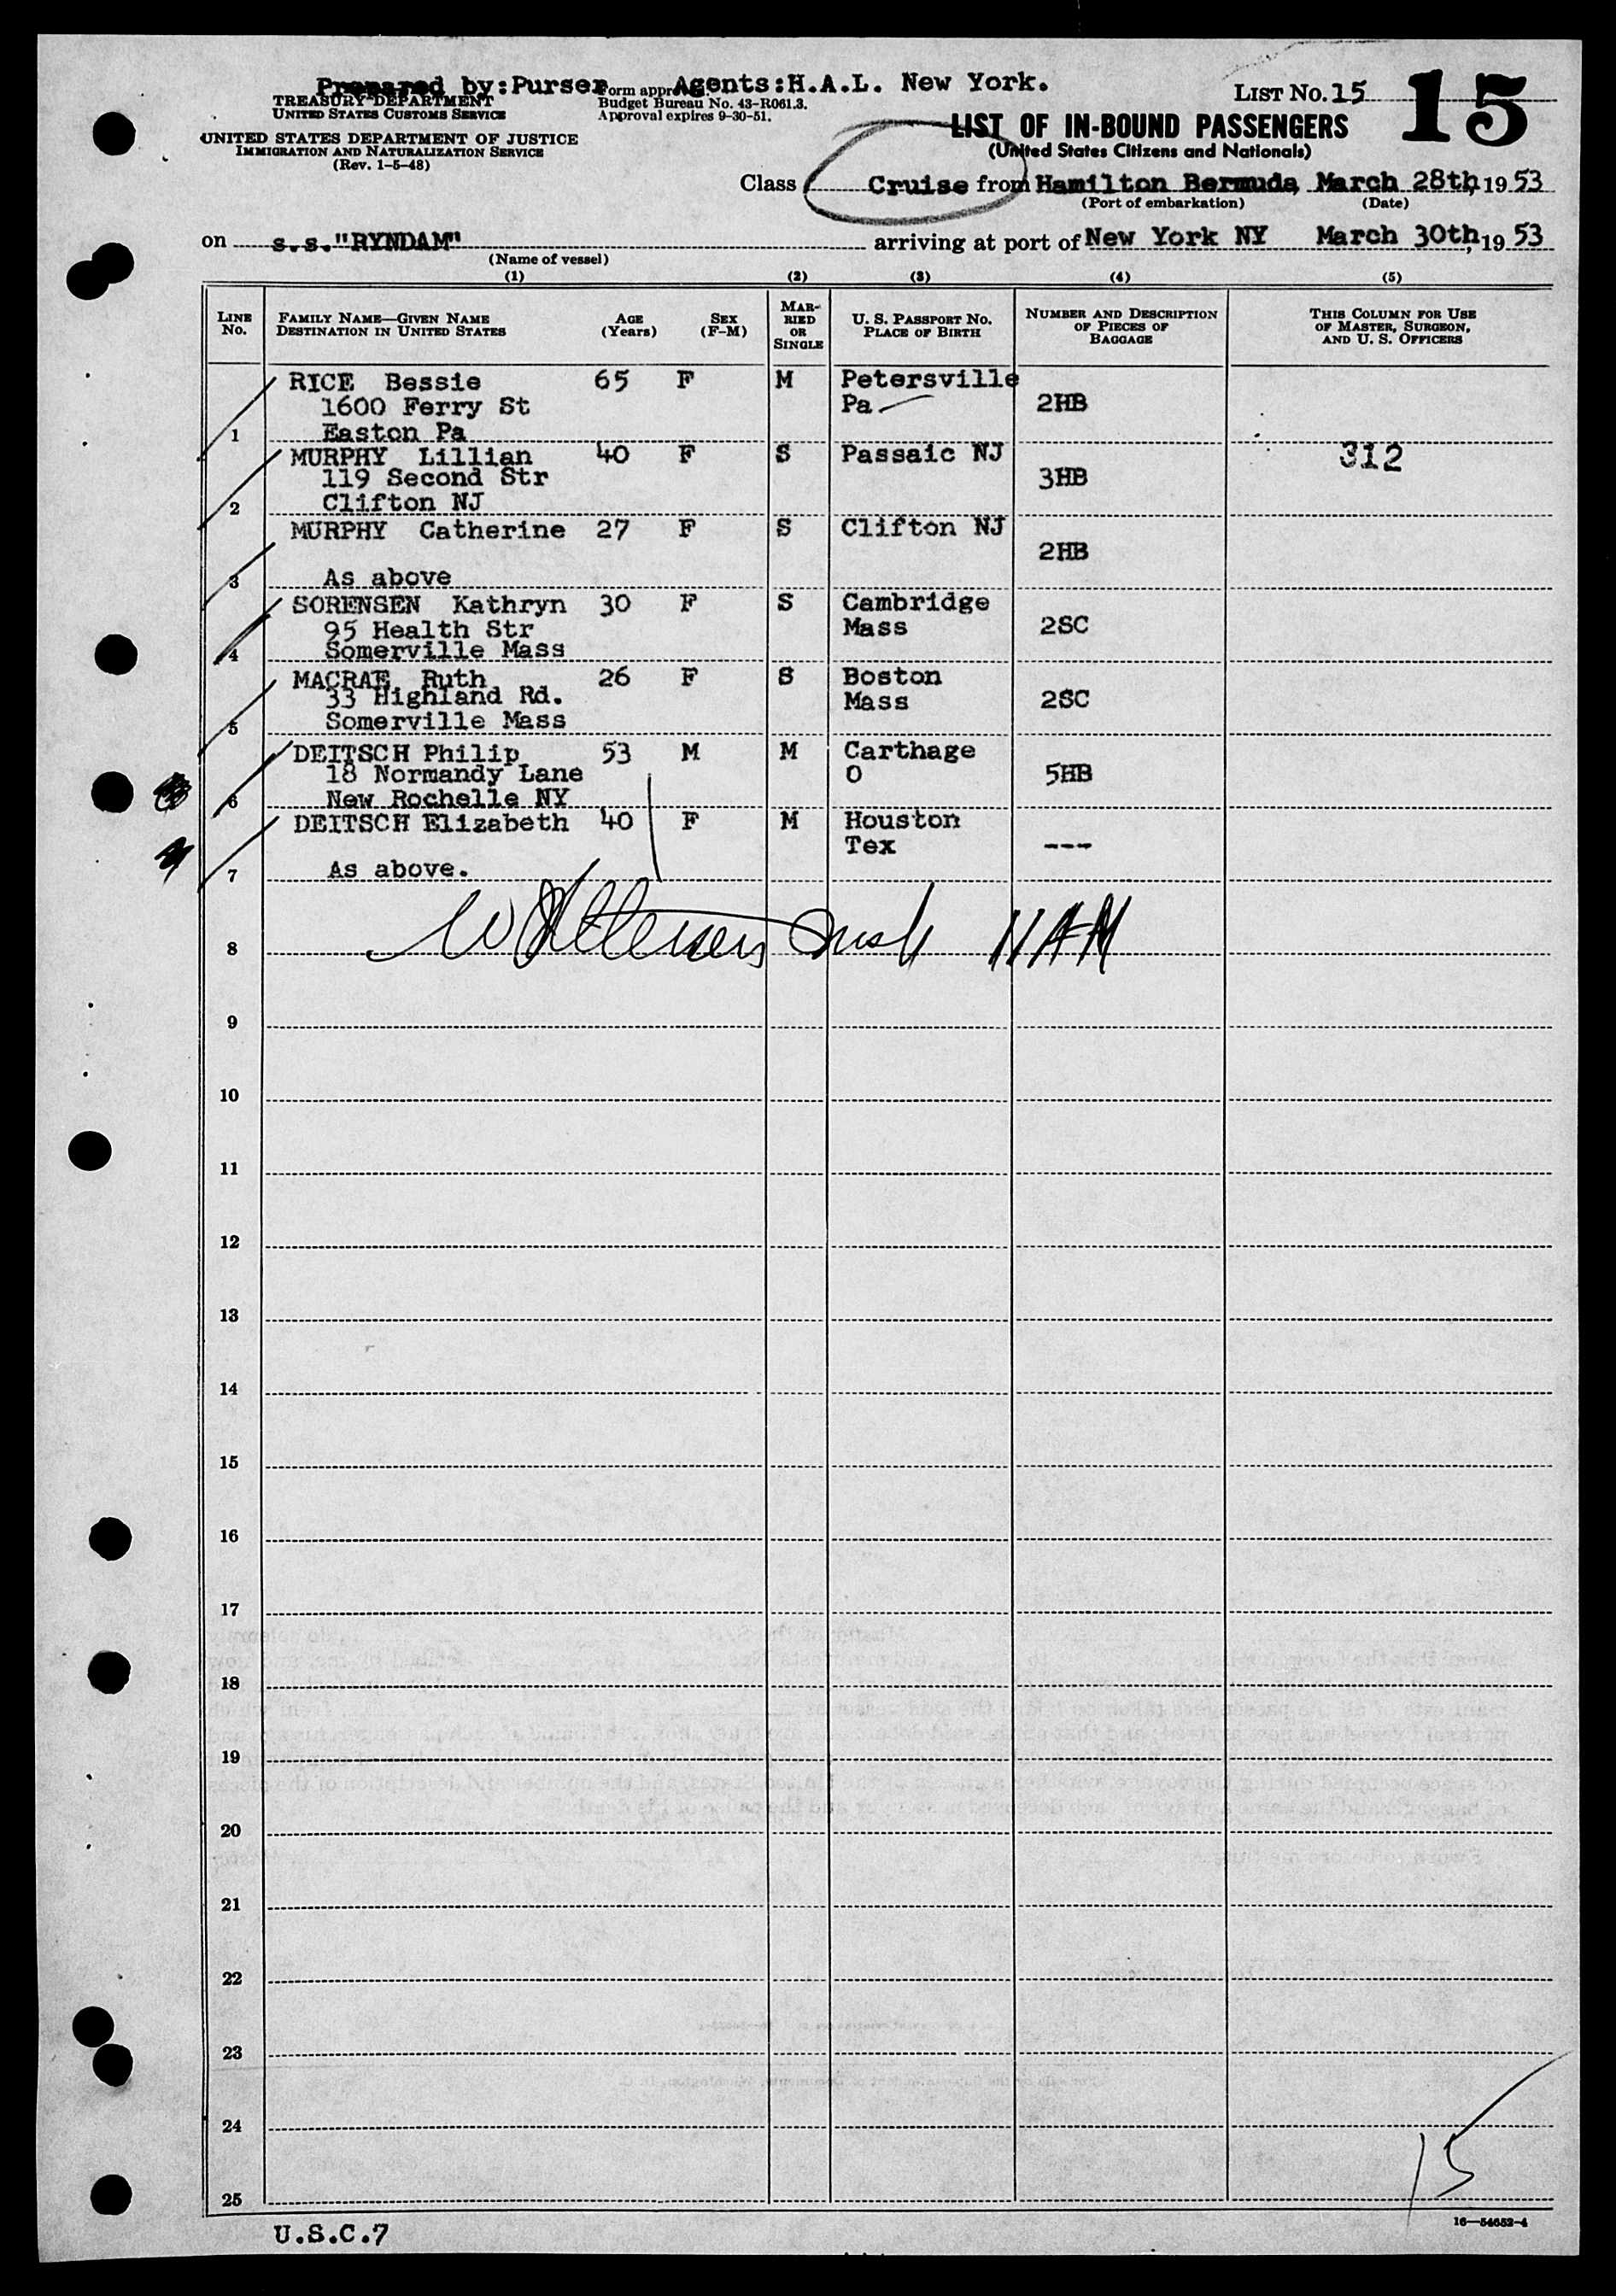 Prepared by: Purser Form appr Agents: H.A.L. New York.
TREASURY DEPARTMENT
UNITED STATES CUSTOMS SERVICE
Budget Bureau No. 43-R061.3.
Approval expires 9-30-51.
LIST No. 15
15
UNITED STATES DEPARTMENT OF JUSTICE
IMMIGRATION AND NATURALIZATION SERVICE
(Rev. 1-5-48)
LIST OF IN-BOUND PASSENGERS
(United States Citizens and Nationals)
Class Cruise from Hamilton Bermuda, March 28th, 1953
(Port of embarkation) (Date)
on s.s."RYNDAM" arriving at port of New York NY March 30th, 1953
(Name of vessel)
(1) (2) (3) (4) (5)
LINE No. FAMILY NAME—GIVEN NAME DESTINATION IN UNITED STATES AGE (Years) SEX (F-M) MARRIED OR SINGLE U. S. PASSPORT No. PLACE OF BIRTH NUMBER AND DESCRIPTION OF PIECES OF BAGGAGE THIS COLUMN FOR USE OF MASTER, SURGEON, AND U. S. OFFICERS
RICE Bessie 65 F M Petersville
1600 Ferry St Pa 2HB
1 Easton Pa
MURPHY Lillian 40 F S Passaic NJ 312
119 Second Str 3HB
2 Clifton NJ
MURPHY Catherine 27 F S Clifton NJ
2HB
3 As above
SORENSEN Kathryn 30 F S Cambridge
95 Health Str Mass 2SC
4 Somerville Mass
MACRAE Ruth 26 F S Boston
33 Highland Rd. Mass 2SC
5 Somerville Mass
DEITSCH Philip 53 M M Carthage
18 Normandy Lane O 5HB
6 New Rochelle NY
DEITSCH Elizabeth 40 F M Houston
Tex ---
7 As above.
8
9
10
11
12
13
14
15
16
17
18
19
20
21
22
23
24
15
25
16—54652-4
U.S.C.7